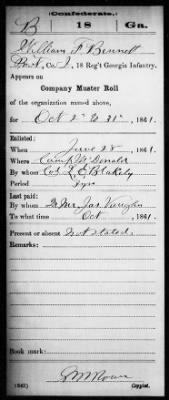 Confederate.
B 18 Ga.
William F. Bennett
Pvt, Co. I, 18 Reg't Georgia Infantry.
Appears on
Company Muster Roll
of the organization named above,
for Oct 1st to 31st, 1861.
Enlisted:
When June 28, 1861.
Where Camp McDonald
By whom Col. L. E. Blakely
Period
Last paid:
By whom Qr. Mr. Jas. Vaughn
To what time Oct, 1861.
Present or absent Not stated
Remarks:
Book mark:
(642) Copyist.